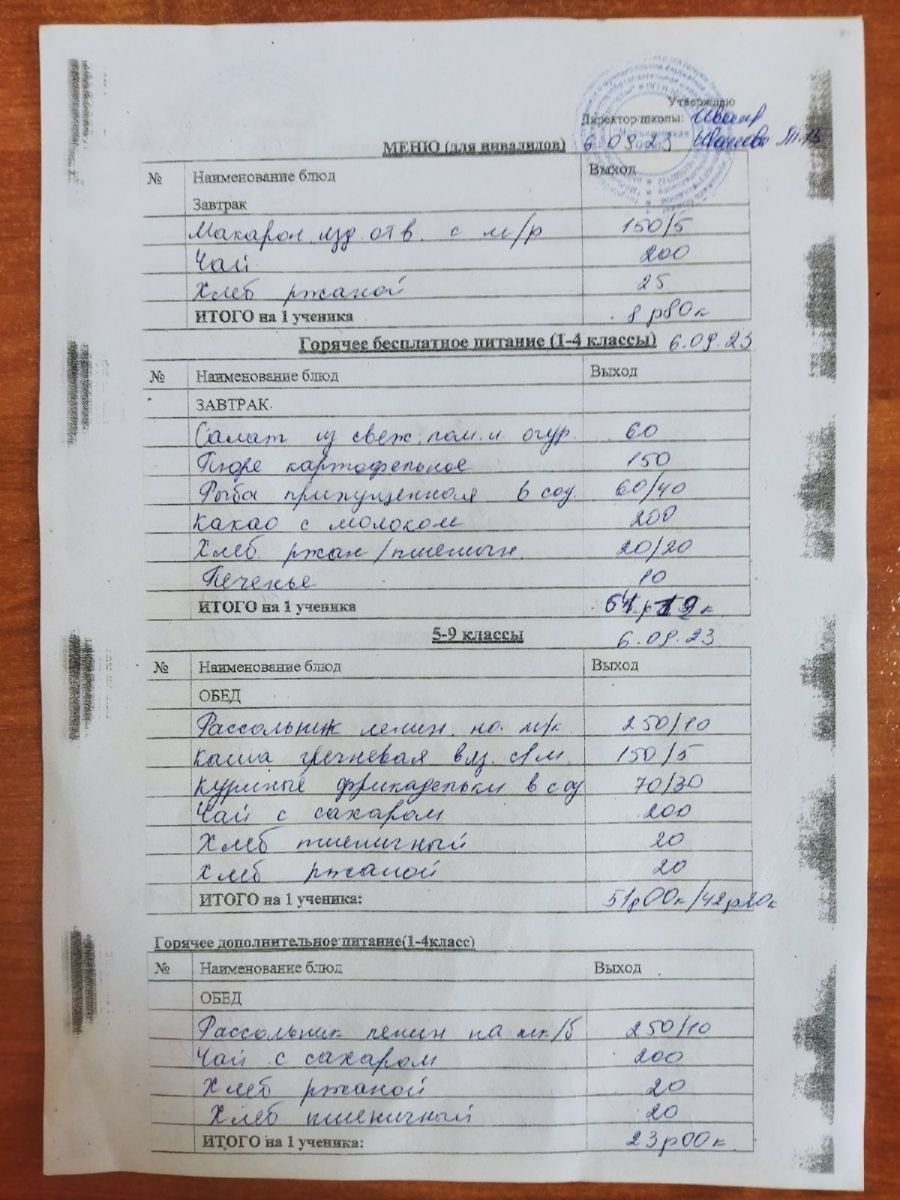 Утверждаю
Директор школы:
МЕНЮ (для инвалидов) 6 09 23 Иванова Т.В
№ Наименование блюд Выход
Завтрак
Макарон изд отв. с м/р 150/5
Чай 200
Хлеб ржаной 25
ИТОГО на 1 ученика 8 р80к
Горячее бесплатное питание (1-4 классы) 6.09.23
№ Наименование блюд Выход
ЗАВТРАК
Салат из свеж. пом. и огур. 60
Пюре картофельное 150
Рыба припущенная в соу. 60/40
Какао с молоком 200
Хлеб ржан/пшеничн. 20/20
Печенье 10
ИТОГО на 1 ученика
5-9 классы 6.09.23
№ Наименование блюд Выход
ОБЕД
Рассольник ленин. на. м/к. 250/10
Каша гречневая вяз. с/м. 150/5
Куриные фрикадельки в соу 70/30
Чай с сахаром 200
Хлеб пшеничный 20
Хлеб ржаной 20
ИТОГО на 1 ученика: 51р00к/42р20к
Горячее дополнительное питание(1-4класс)
№ Наименование блюд Выход
ОБЕД
Рассольник ленин на мк/б 250/10
Чай с сахаром 200
Хлеб ржаной 20
Хлеб пшеничный 20
ИТОГО на 1 ученика: 23р00к